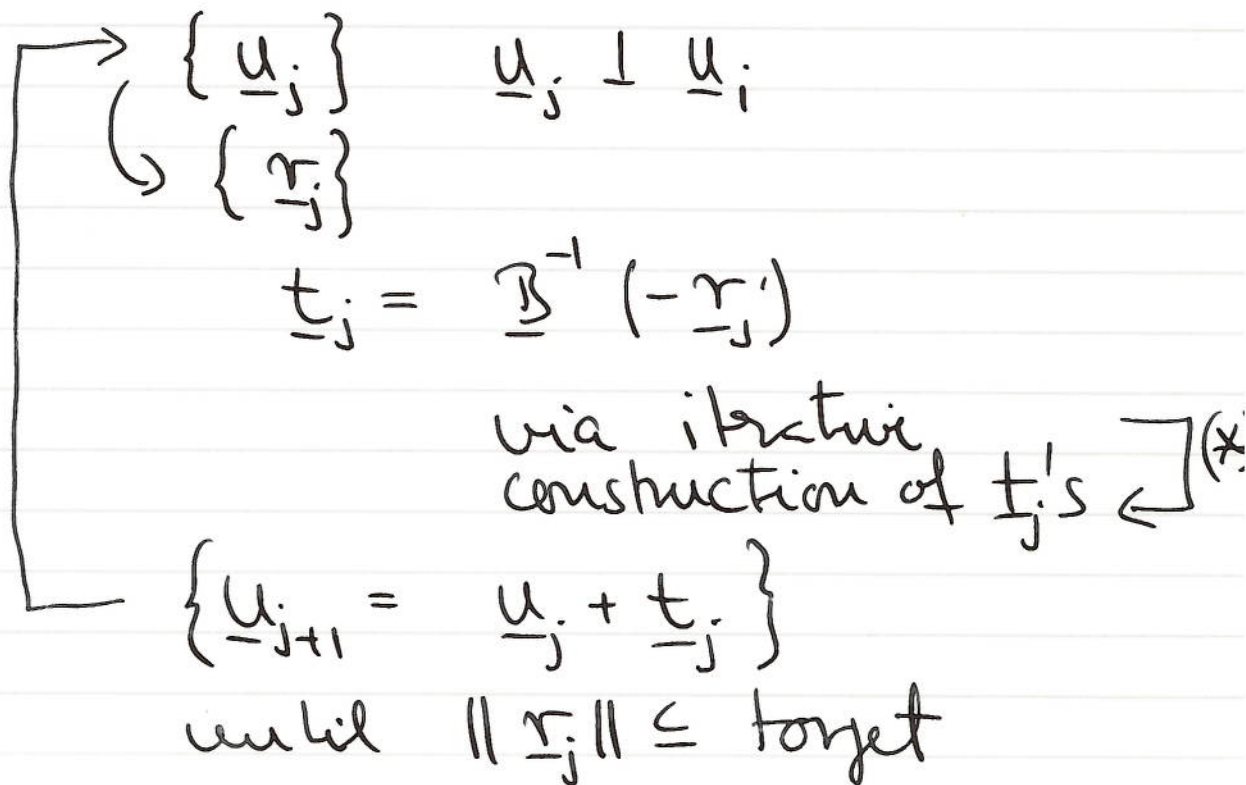 { u_j } u_j ⊥ u_i
{ r_j }
t_j = B^{-1} (-r_j)
via iterative
construction of t_j's (*)
{ u_{j+1} = u_j + t_j }
until || r_j || ≤ target